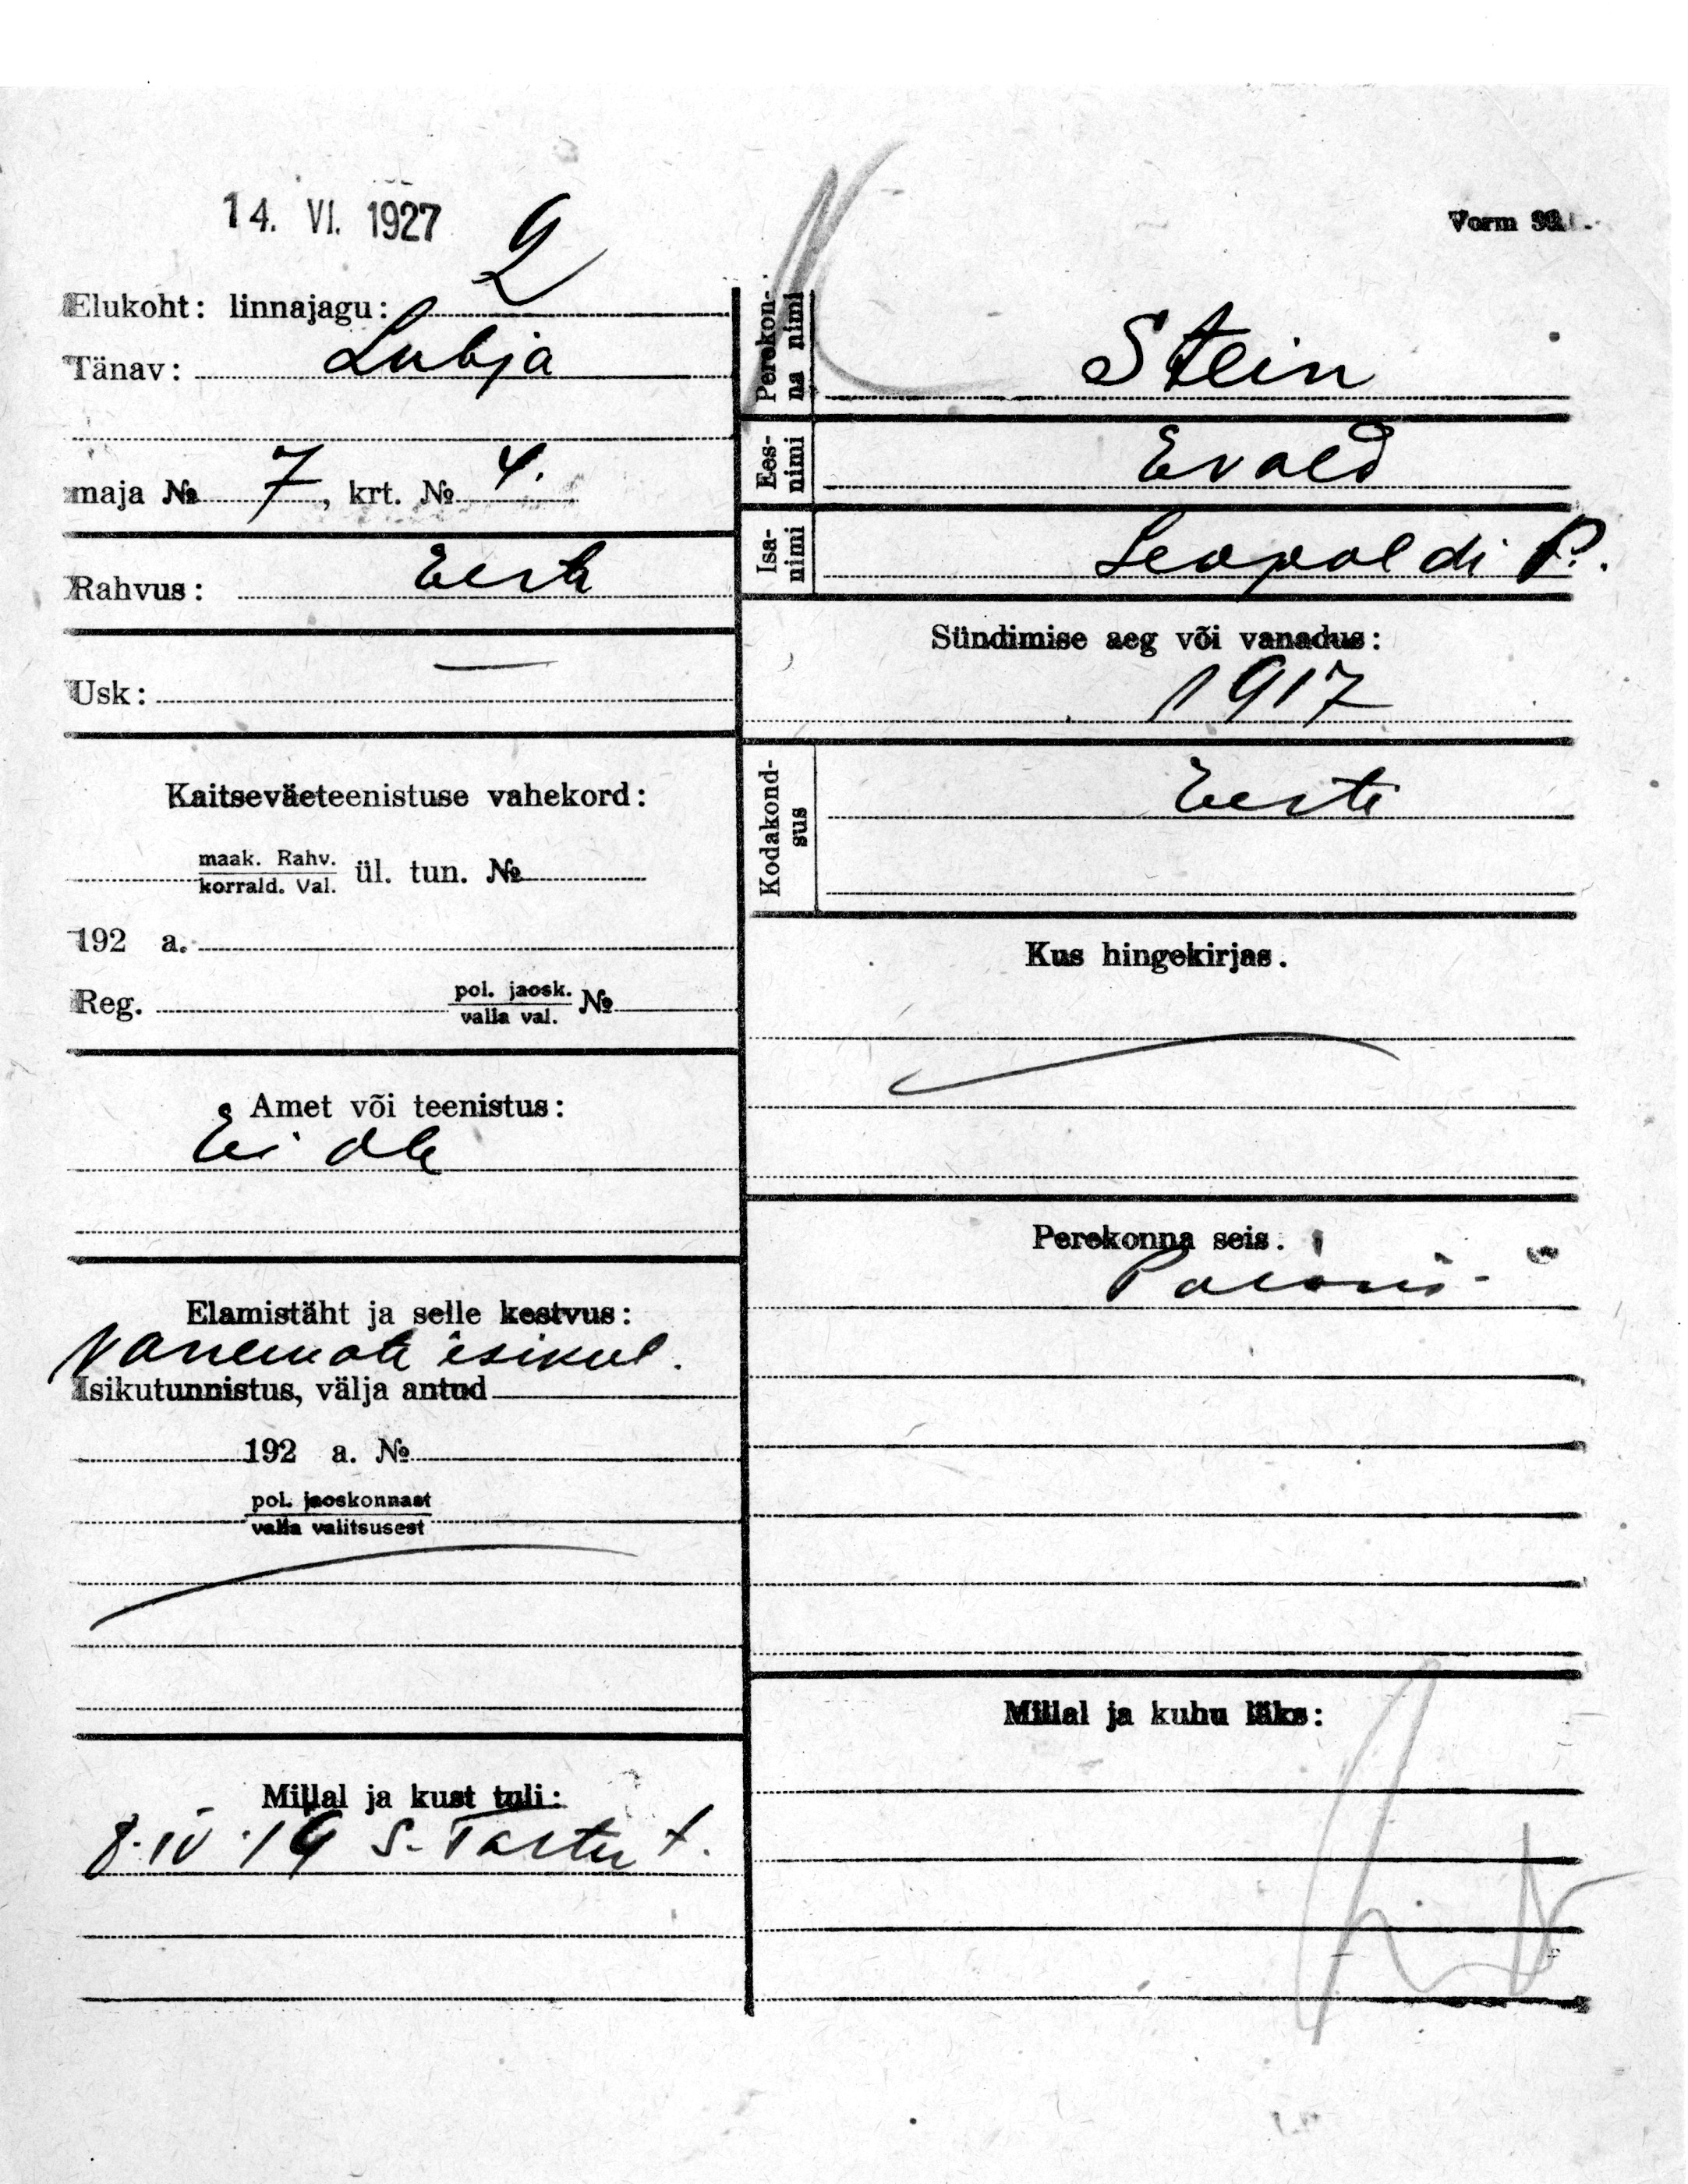 14. VI. 1927
Vorm 30.
Elukoht: linnajagu: 2
Tänav: Lubja
maja № 7, krt. № 4.
Rahvus: Eesti
Usk: —
Kaitseväeteenistuse vahekord:
maak. Rahv.
korrald. Val. ül. tun. №
192 a.
Reg. pol. jaosk. №
valla val.
Amet või teenistus:
Ei ole
Elamistäht ja selle kestvus:
Vanemate isikul.
Isikutunnistus, välja antud
192 a. №
pol. jaoskonnast
valla valitsusest
Millal ja kust tuli:
8.IV.19 S. Tartu t.
Perekon-
na nimi
Stein
Ees-
nimi
Evald
Isa-
nimi
Leopoldi P.
Sündimise aeg või vanadus:
1917
Kodakond-
sus
Eesti
Kus hingekirjas.
Perekonna seis.
Millal ja kuhu läks: